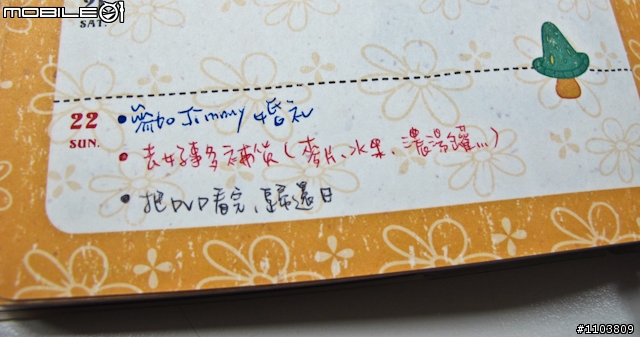 MOBILE01
SAT.
22
SUN.
•參加Jimmy婚礼
•去好事多補貨(麥片、水果、濃湯罐...)
•把DVD看完、歸還日
#1103809